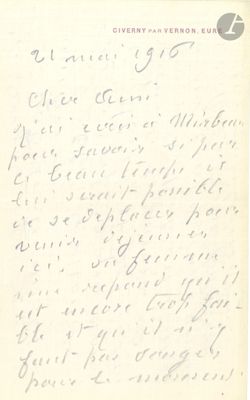 GIVERNY PAR VERNON, EURE
21 mai 1916
Cher Ami
j'ai écrit à Mirbeau
pour savoir si par
ce beau temps il
lui serait possible
de se déplacer pour
venir déjeuner
ici, sa femme
me répond qu'il
est encore trop fai-
ble et qu'il n'y
faut pas songer
pour le moment